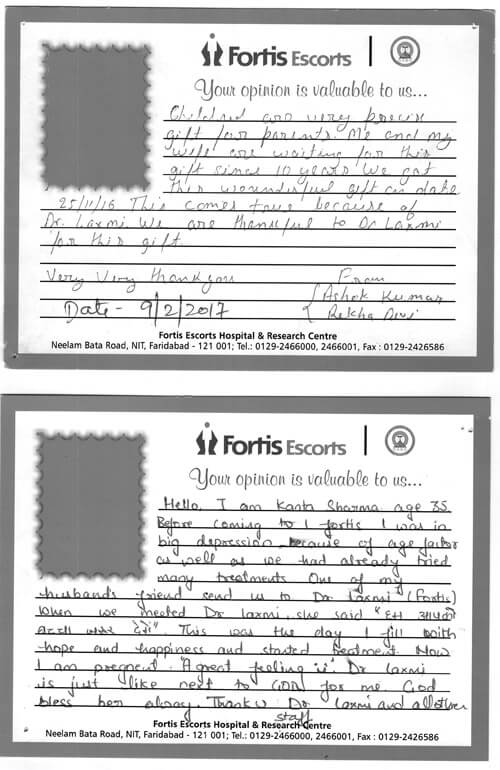 Fortis Escorts
Your opinion is valuable to us...
Children are very precise
gift for parents. Me and my
wife are waiting for this
gift since 10 years We got
this wounderful gift on date
25/11/16 This comes true because of
Dr. Laxmi. We are thankful to Dr Laxmi
for this gift
Very Very thankyou From
Ashok Kumar
Date - 9/2/2017 Rekha Devi
Fortis Escorts Hospital & Research Centre
Neelam Bata Road, NIT, Faridabad - 121 001; Tel.: 0129-2466000, 2466001, Fax : 0129-2426586
Fortis Escorts
Your opinion is valuable to us...
Hello, I am Kanta Sharma age 35
Before coming to fortis I was in
big depression because of age factor
as well as we had already tried
many treatments One of my
husband's friend send us to Dr Laxmi (Fortis)
When we meeted Dr laxmi, she said "हम आपको
बच्चा देंगे". This was the day I fill with
hope and happiness and started treatment. Now
I am pregnent. A great feeling is it. Dr laxmi
is just like next to GOD for me God
bless her always. Thanku Dr Laxmi and all other
staff
Fortis Escorts Hospital & Research Centre
Neelam Bata Road, NIT, Faridabad - 121 001; Tel.: 0129-2466000, 2466001, Fax : 0129-2426586